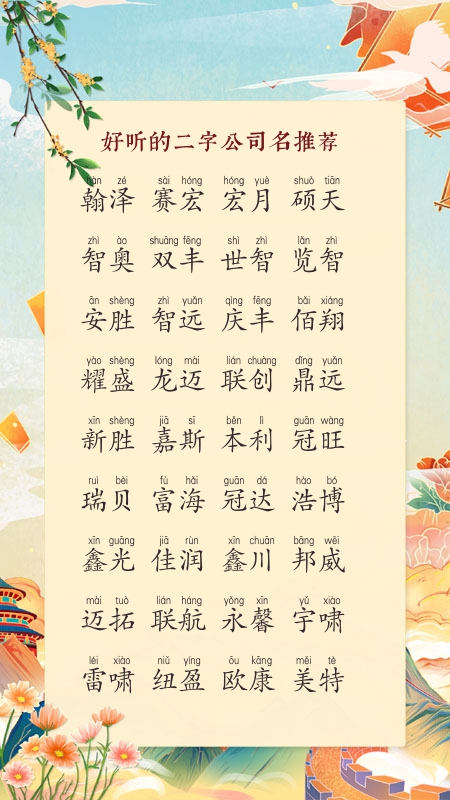 好听的二字公司名推荐
hàn zé sài hóng hóng yuè shuò tiān
翰泽 赛宏 宏月 硕天
zhì ào shuāng fēng shì zhì lǎn zhì
智奥 双丰 世智 览智
ān shèng zhì yuǎn qìng fēng bǎi xiáng
安胜 智远 庆丰 佰翔
yào shèng lóng mài lián chuàng dǐng yuǎn
耀盛 龙迈 联创 鼎远
xīn shèng jiā sī běn lì guān wàng
新胜 嘉斯 本利 冠旺
ruì bèi fù hǎi guān dá hào bó
瑞贝 富海 冠达 浩博
xīn guāng jiā rùn xīn chuān bāng wēi
鑫光 佳润 鑫川 邦威
mài tuò lián háng yǒng xīn yǔ xiào
迈拓 联航 永馨 宇啸
léi xiào niǔ yíng ōu kāng měi tè
雷啸 纽盈 欧康 美特